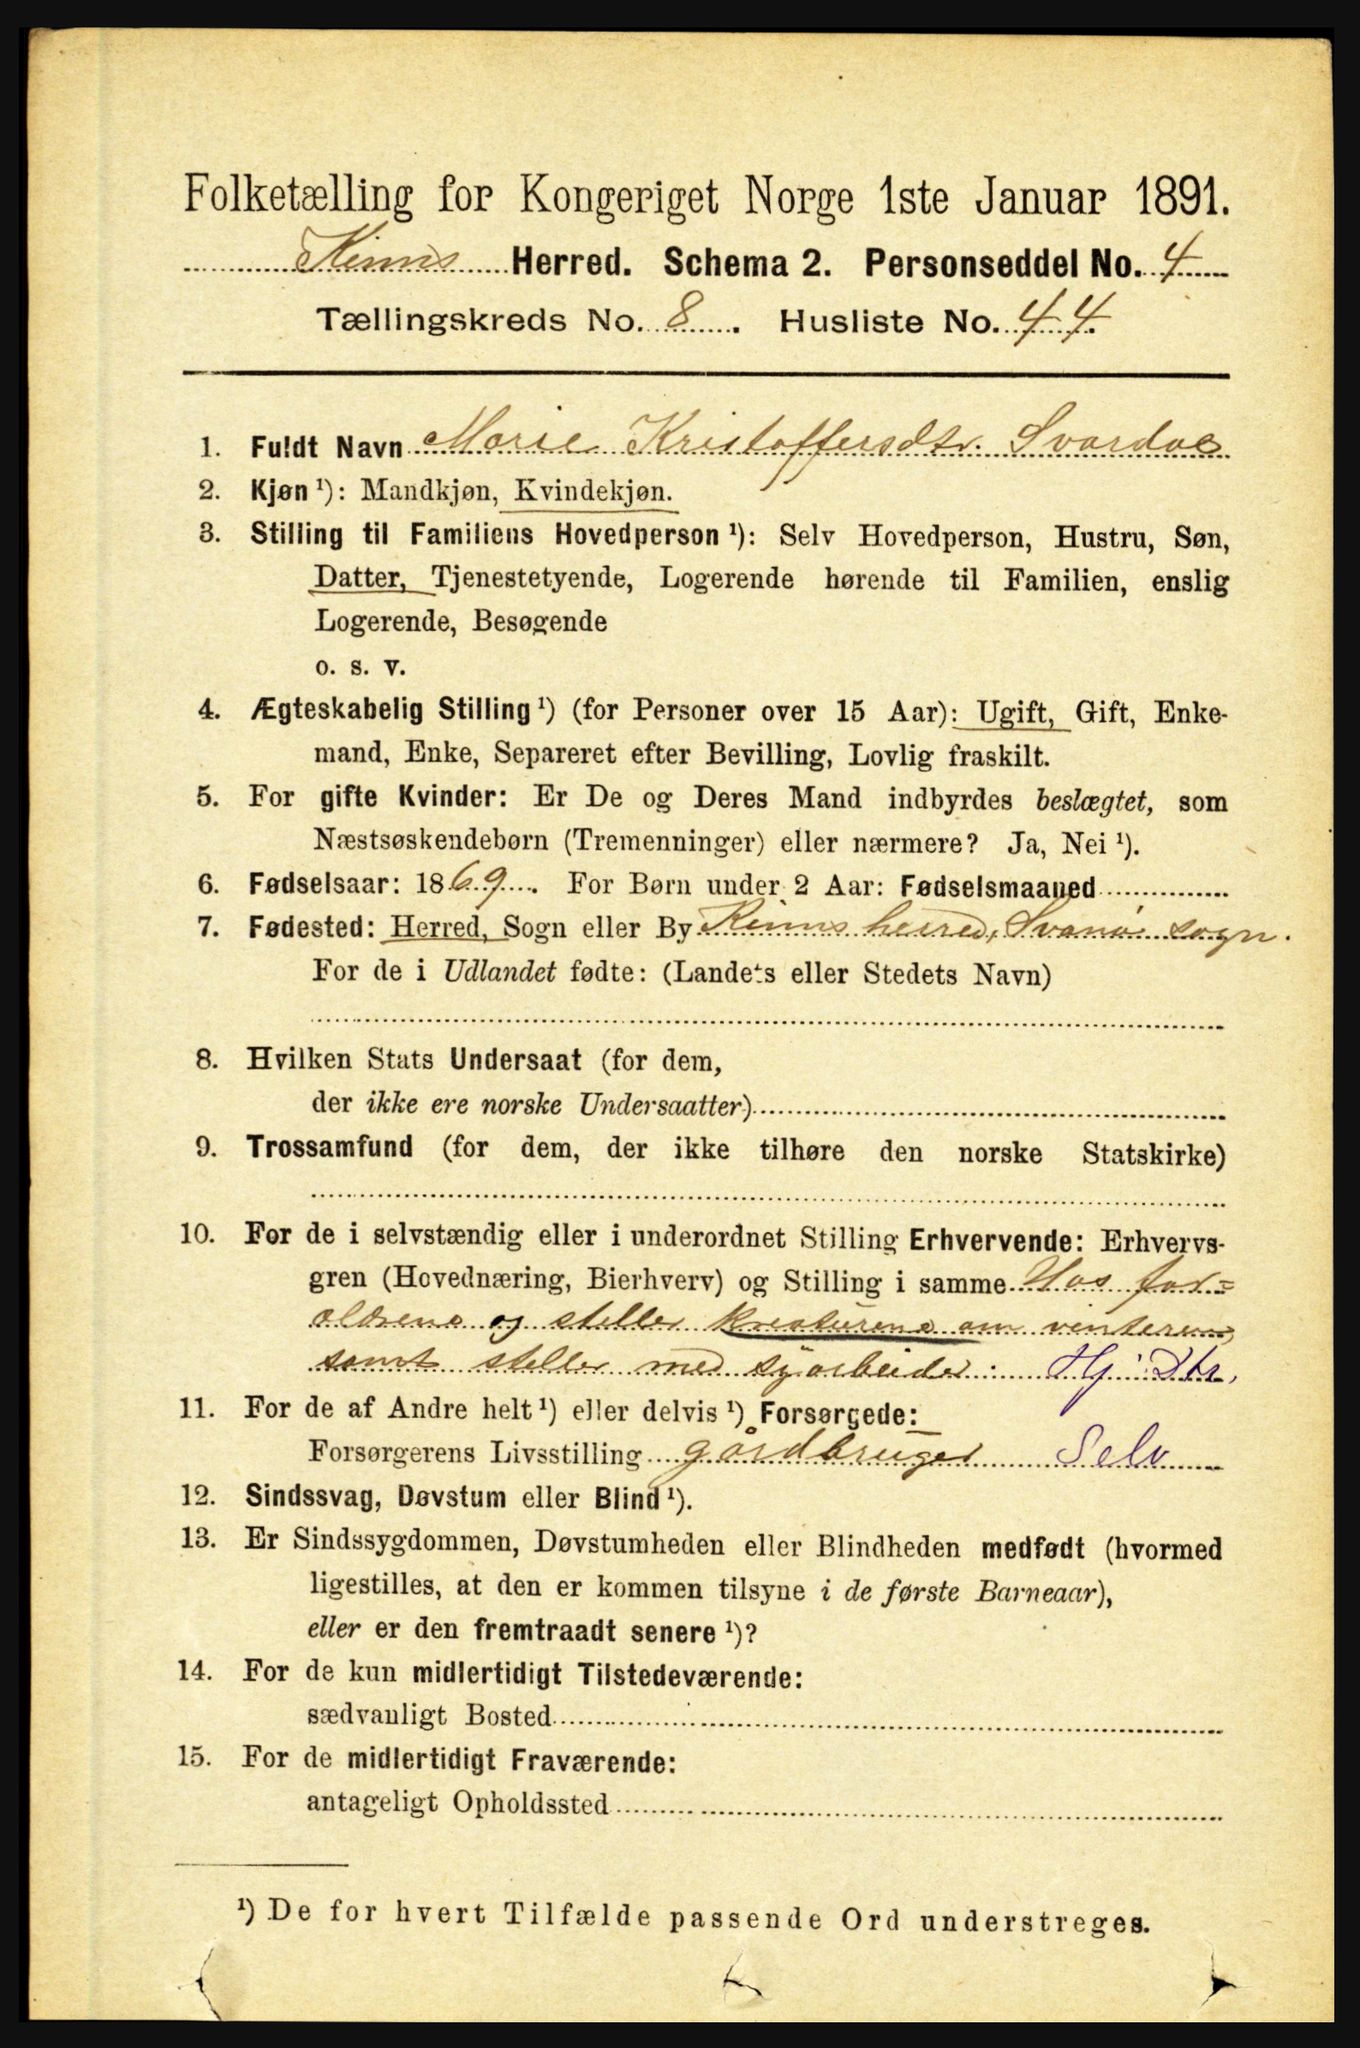 Folketælling for Kongeriget Norge 1ste Januar 1891.
Kinns Herred. Schema 2. Personseddel No. 4
Tællingskreds No. 8. Husliste No. 44.
1. Fuldt Navn Marie Kristoffersdtr. Svardal
2. Kjøn ¹): Mandkjøn, Kvindekjøn.
3. Stilling til Familiens Hovedperson ¹): Selv Hovedperson, Hustru, Søn,
Datter, Tjenestetyende, Logerende hørende til Familien, enslig
Logerende, Besøgende
o. s. v.
4. Ægteskabelig Stilling ¹) (for Personer over 15 Aar): Ugift, Gift, Enke-
mand, Enke, Separeret efter Bevilling, Lovlig fraskilt.
5. For gifte Kvinder: Er De og Deres Mand indbyrdes beslægtet, som
Næstsøskendebørn (Tremenninger) eller nærmere? Ja, Nei ¹).
6. Fødselsaar: 1869. For Børn under 2 Aar: Fødselsmaaned
7. Fødested: Herred, Sogn eller By Kinns herred, Svanø sogn.
For de i Udlandet fødte: (Landets eller Stedets Navn)
8. Hvilken Stats Undersaat (for dem,
der ikke ere norske Undersaatter)
9. Trossamfund (for dem, der ikke tilhøre den norske Statskirke)
10. For de i selvstændig eller i underordnet Stilling Erhvervende: Erhvervs-
gren (Hovednæring, Bierhverv) og Stilling i samme Hos for=
ældrene og steller kreaturene om vinteren,
samt steller med syarbeider. Hj. Dtr.
11. For de af Andre helt ¹) eller delvis ¹) Forsørgede:
Forsørgerens Livsstilling gårdbruger Selv
12. Sindssvag, Døvstum eller Blind ¹).
13. Er Sindssygdommen, Døvstumheden eller Blindheden medfødt (hvormed
ligestilles, at den er kommen tilsyne i de første Barneaar),
eller er den fremtraadt senere ¹)?
14. For de kun midlertidigt Tilstedeværende:
sædvanligt Bosted
15. For de midlertidigt Fraværende:
antageligt Opholdssted
¹) De for hvert Tilfælde passende Ord understreges.